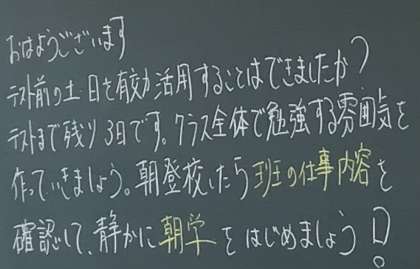 おはようございます
テスト前の土日を有効活用することはできましたか?
テストまで残り3日です。クラス全体で勉強する雰囲気を
作っていきましょう。朝登校したら班の仕事内容を
確認して、静かに朝学をはじめましょう!